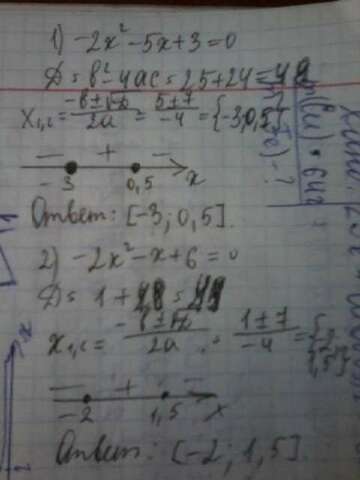 1) -2x²-5x+3=0
D=b²-4ac=25+24=49
x₁,₂=(-b±√D)/2a=(5±7)/-4={-3;0,5}
- + -
-3 0,5 x
Ответ: [-3; 0,5].
2) -2x²-x+6=0
D=1+48=49
x₁,₂=(-b±√D)/2a=(1±7)/-4=
- + -
-2 1,5 x
Ответ: [-2; 1,5].